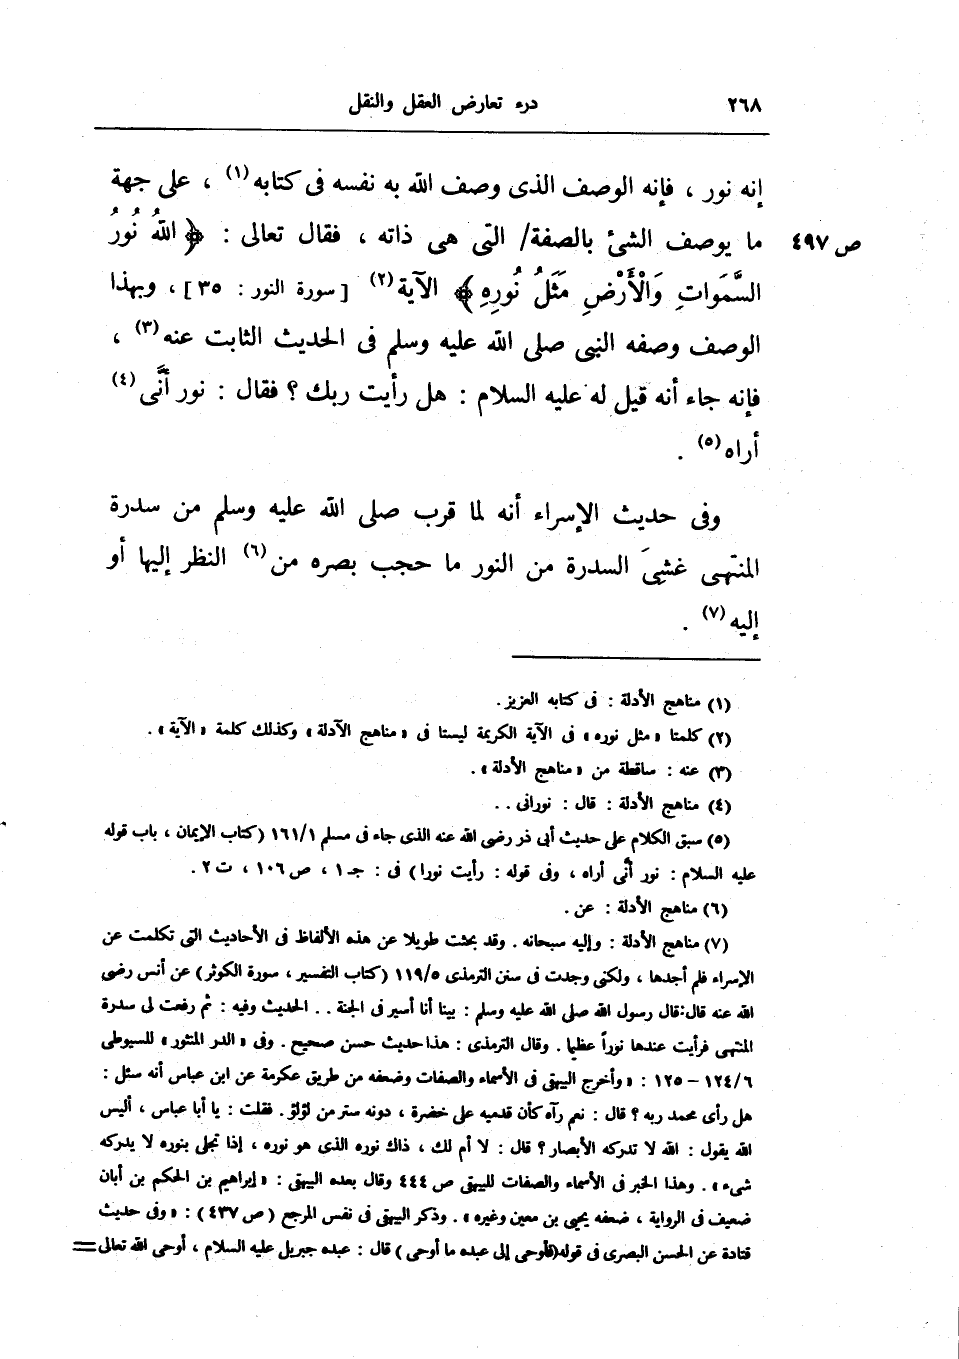 ٢٦٨
درء تعارض العقل والنقل
إنه نور ، فإنه الوصف الذى وصف الله به نفسه فى كتابه(١) ، على جهة
ما يوصف الشئ بالصفة/ التى هى ذاته ، فقال تعالى : ﴿ اللهُ نُورُ
ص ٤٩٧
السَّمَواتِ وَالْأَرْضِ مَثَلُ نُورِهِ ﴾ الآية(٢) [ سورة النور : ٣٥ ] ، وبهذا
الوصف وصفه النبى صلى الله عليه وسلم فى الحديث الثابت عنه(٣) ،
فإنه جاء أنه قيل له عليه السلام : هل رأيت ربك ؟ فقال : نور أنَّى(٤)
أراه(٥) .
وفى حديث الإسراء أنه لما قرب صلى الله عليه وسلم من سدرة
المنتهى غشِىَ السدرة من النور ما حجب بصره من(٦) النظر إليها أو
إليه(٧) .
(١) مناهج الأدلة : فى كتابه العزيز .
(٢) كلمتا « مثل نوره » فى الآية الكريمة ليستا فى « مناهج الأدلة » وكذلك كلمة « الآية » .
(٣) عنه : ساقطة من « مناهج الأدلة » .
(٤) مناهج الأدلة : قال : نورانى . .
(٥) سبق الكلام على حديث أبى ذر رضى الله عنه الذى جاء فى مسلم ١٦١/١ (كتاب الإيمان ، باب قوله
عليه السلام : نور أنَّى أراه ، وفى قوله : رأيت نورا ) فى : جـ ١ ، ص ١٠٦ ، ت ٢ .
(٦) مناهج الأدلة : عن .
(٧) مناهج الأدلة : وإليه سبحانه . وقد بحثت طويلا عن هذه الألفاظ فى الأحاديث التى تكلمت عن
الإسراء فلم أجدها ، ولكنى وجدت فى سنن الترمذى ١١٩/٥ (كتاب التفسير ، سورة الكوثر ) عن أنس رضى
الله عنه قال : قال رسول الله صلى الله عليه وسلم : بينا أنا أسير فى الجنة . . الحديث وفيه : ثم رفعت لى سدرة
المنتهى فرأيت عندها نوراً عظيما . وقال الترمذى : هذا حديث حسن صحيح . وفى « الدر المنثور » للسيوطى
١٢٤/٦ – ١٢٥ : « وأخرج البيهقى فى الأسماء والصفات وضعفه من طريق عكرمة عن ابن عباس أنه سئل :
هل رأى محمد ربه ؟ قال : نعم رآه كأن قدميه على خضرة ، دونه ستر من لؤلؤ . فقلت : يا أبا عباس ، أليس
الله يقول : الله لا تدركه الأبصار ؟ قال : لا أم لك ، ذاك نوره الذى هو نوره ، إذا تجلى بنوره لا يدركه
شىء » . وهذا الخبر فى الأسماء والصفات للبيهقى ص ٤٤٤ وقال بعده البيهقى : « إبراهيم بن الحكم بن أبان
ضعيف فى الرواية ، ضعفه يحيى بن معين وغيره » . وذكر البيهقى فى نفس المرجع ( ص ٤٣٧ ) : « وفى حديث
قتادة عن الحسن البصرى فى قوله (فأوحى إلى عبده ما أوحى ) قال : عبده جبريل عليه السلام ، أوحى الله تعالى =